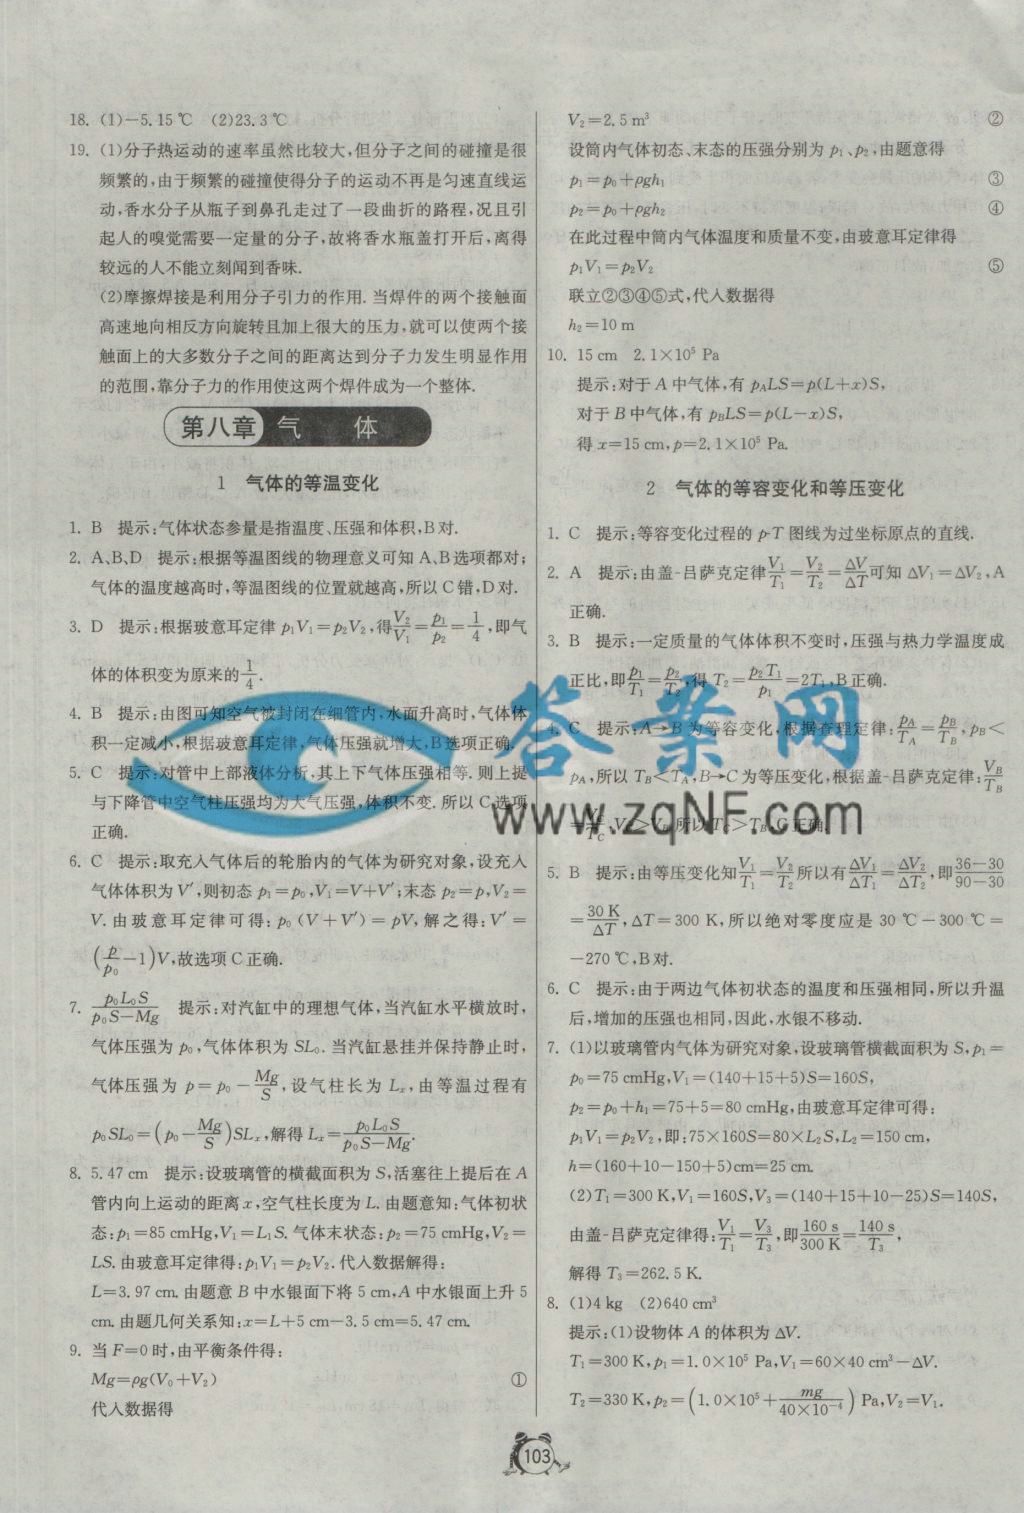 18. (1)-5.15 ℃ (2)23.3 ℃
19. (1)分子热运动的速率虽然比较大,但分子之间的碰撞是很
频繁的,由于频繁的碰撞使得分子的运动不再是匀速直线运
动,香水分子从瓶子到鼻孔走过了一段曲折的路程,况且引
起人的嗅觉需要一定量的分子,故将香水瓶盖打开后,离得
较远的人不能立刻闻到香味.
(2)摩擦焊接是利用分子引力的作用. 当焊件的两个接触面
高速地向相反方向旋转且加上很大的压力,就可以使两个接
触面上的大多数分子之间的距离达到分子力发生明显作用
的范围,靠分子力的作用使这两个焊件成为一个整体.
第八章 气 体
1 气体的等温变化
1. B 提示:气体状态参量是指温度、压强和体积,B对.
2. A、B、D 提示:根据等温图线的物理意义可知 A、B选项都对;
气体的温度越高时,等温图线的位置就越高,所以 C 错,D 对.
3. D 提示:根据玻意耳定律 p₁V₁=p₂V₂,得V₂/V₁=p₁/p₂=1/4,即气
体的体积变为原来的1/4.
4. B 提示:由图可知空气被封闭在细管内,水面升高时,气体体
积一定减小,根据玻意耳定律,气体压强就增大,B选项正确.
5. C 提示:对管中上部液体分析,其上下气体压强相等. 则上提
与下降管中空气柱压强均为大气压强,体积不变. 所以 C 选项
正确.
6. C 提示:取充入气体后的轮胎内的气体为研究对象,设充入
气体体积为 V′,则初态 p₁=p₀,V₁=V+V′;末态 p₂=p,V₂=
V. 由玻意耳定律可得: p₀(V+V′)=pV,解之得: V′=
(p/p₀-1)V,故选项 C 正确.
7. p₀L₀S/(p₀S-Mg) 提示:对汽缸中的理想气体,当汽缸水平横放时,
气体压强为 p₀,气体体积为 SL₀. 当汽缸悬挂并保持静止时,
气体压强为 p=p₀-Mg/S,设气柱长为 Lₓ,由等温过程有
p₀SL₀=(p₀-Mg/S)SLₓ,解得 Lₓ=p₀L₀S/(p₀S-Mg).
8. 5.47 cm 提示:设玻璃管的横截面积为 S,活塞往上提后在 A
管内向上运动的距离 x,空气柱长度为 L. 由题意知:气体初状
态:p₁=85 cmHg,V₁=L₁S. 气体末状态:p₂=75 cmHg,V₂=
LS. 由玻意耳定律得:p₁V₁=p₂V₂. 代入数据解得:
L=3.97 cm. 由题意 B 中水银面下将 5 cm,A 中水银面上升 5
cm. 由题几何关系知:x=L+5 cm-3.5 cm=5.47 cm.
9. 当 F=0 时,由平衡条件得:
Mg=ρg(V₀+V₂) ①
代入数据得
V₂=2.5 m³ ②
设筒内气体初态、末态的压强分别为 p₁、p₂,由题意得
p₁=p₀+ρgh₁ ③
p₂=p₀+ρgh₂ ④
在此过程中筒内气体温度和质量不变,由玻意耳定律得
p₁V₁=p₂V₂ ⑤
联立②③④⑤式,代人数据得
h₂=10 m
10. 15 cm 2.1×10⁵ Pa
提示:对于 A 中气体,有 p_ALS=p(L+x)S,
对于 B 中气体,有 p_BLS=p(L-x)S,
得 x=15 cm,p=2.1×10⁵ Pa.
2 气体的等容变化和等压变化
1. C 提示:等容变化过程的 p-T 图线为过坐标原点的直线.
2. A 提示:由盖-吕萨克定律V₁/T₁=V₂/T₂=ΔV/ΔT可知 ΔV₁=ΔV₂,A
正确.
3. B 提示:一定质量的气体体积不变时,压强与热力学温度成
正比,即p₁/T₁=p₂/T₂,得 T₂=p₂T₁/p₁=2T₁,B正确.
4. C 提示:A→B 为等容变化,根据查理定律:p_A/T_A=p_B/T_B,p_B<
p_A,所以 T_B<T_A,B→C 为等压变化,根据盖-吕萨克定律:V_B/T_B
=V_C/T_C,V_C>V_B,所以 T_C>T_B,C正确.
5. B 提示:由等压变化知V₁/T₁=V₂/T₂所以有ΔV₁/ΔT₁=ΔV₂/ΔT₂,即(36-30)/(90-30)
=30 K/ΔT,ΔT=300 K,所以绝对零度应是 30 ℃-300 ℃=
-270 ℃,B对.
6. C 提示:由于两边气体初状态的温度和压强相同,所以升温
后,增加的压强也相同,因此,水银不移动.
7. (1)以玻璃管内气体为研究对象,设玻璃管横截面积为 S,p₁=
p₀=75 cmHg,V₁=(140+15+5)S=160S,
p₂=p₀+h₁=75+5=80 cmHg,由玻意耳定律可得:
p₁V₁=p₂V₂,即:75×160S=80×L₂S,L₂=150 cm,
h=(160+10-150+5)cm=25 cm.
(2)T₁=300 K,V₁=160S,V₃=(140+15+10-25)S=140S,
由盖-吕萨克定律得:V₁/T₁=V₃/T₃,即160 s/300 K=140 s/T₃,
解得 T₃=262.5 K.
8. (1)4 kg (2)640 cm³
提示:(1)设物体 A 的体积为 ΔV.
T₁=300 K,p₁=1.0×10⁵ Pa,V₁=60×40 cm³-ΔV.
T₂=330 K,p₂=(1.0×10⁵+mg/(40×10⁻⁴))Pa,V₂=V₁.
103
答案网
www.zqNF.com